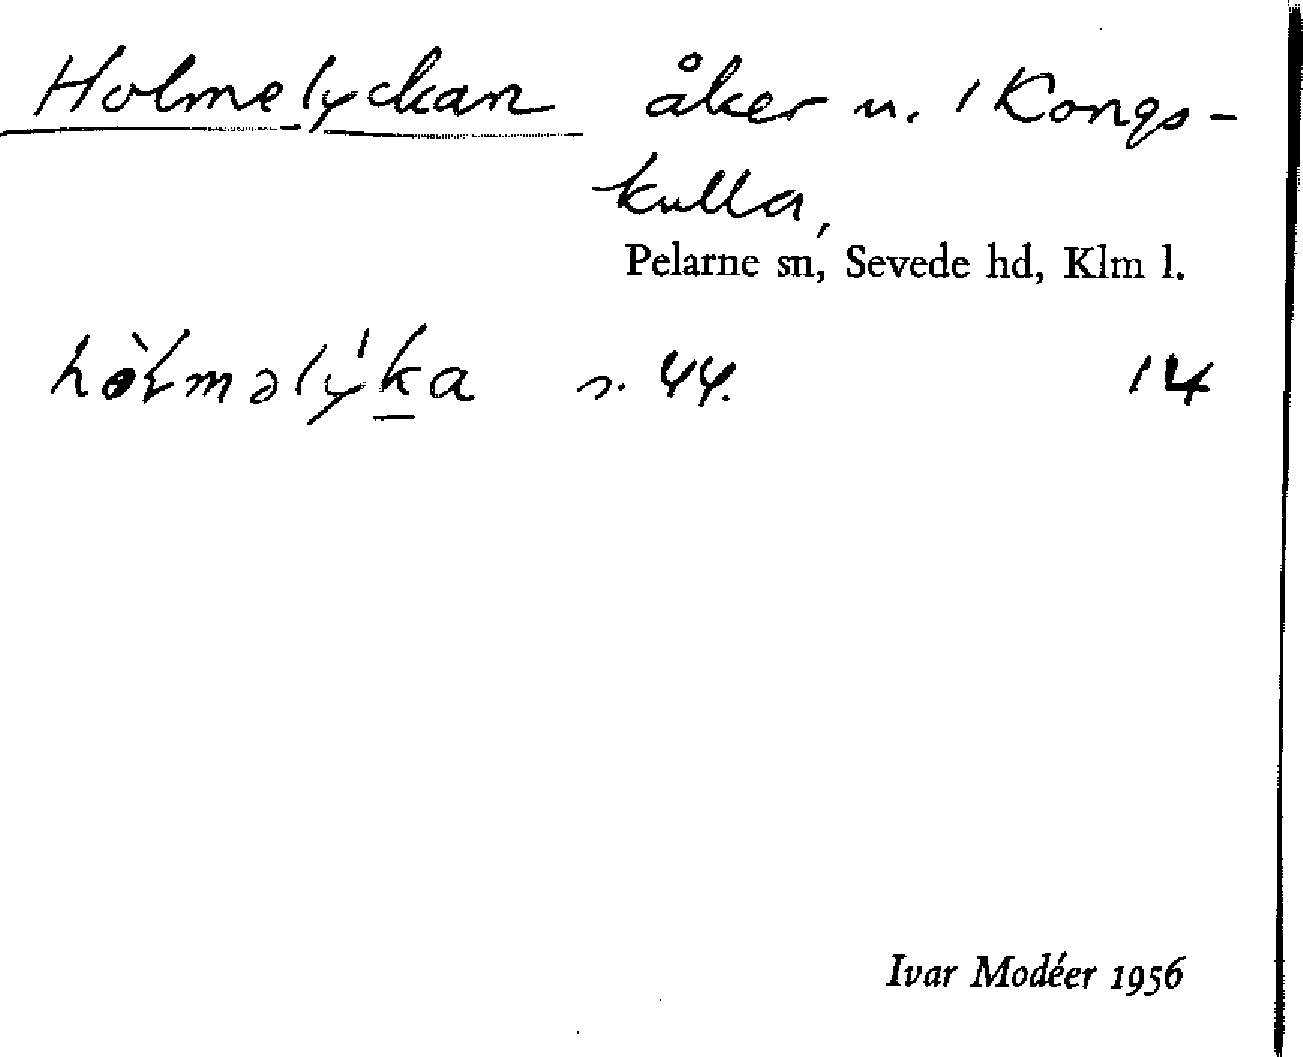 Holmelyckan åker u. 1 Kongs-
kulla,
Pelarne sn, Sevede hd, Klm l.
s. 44. 14
Ivar Modéer 1956